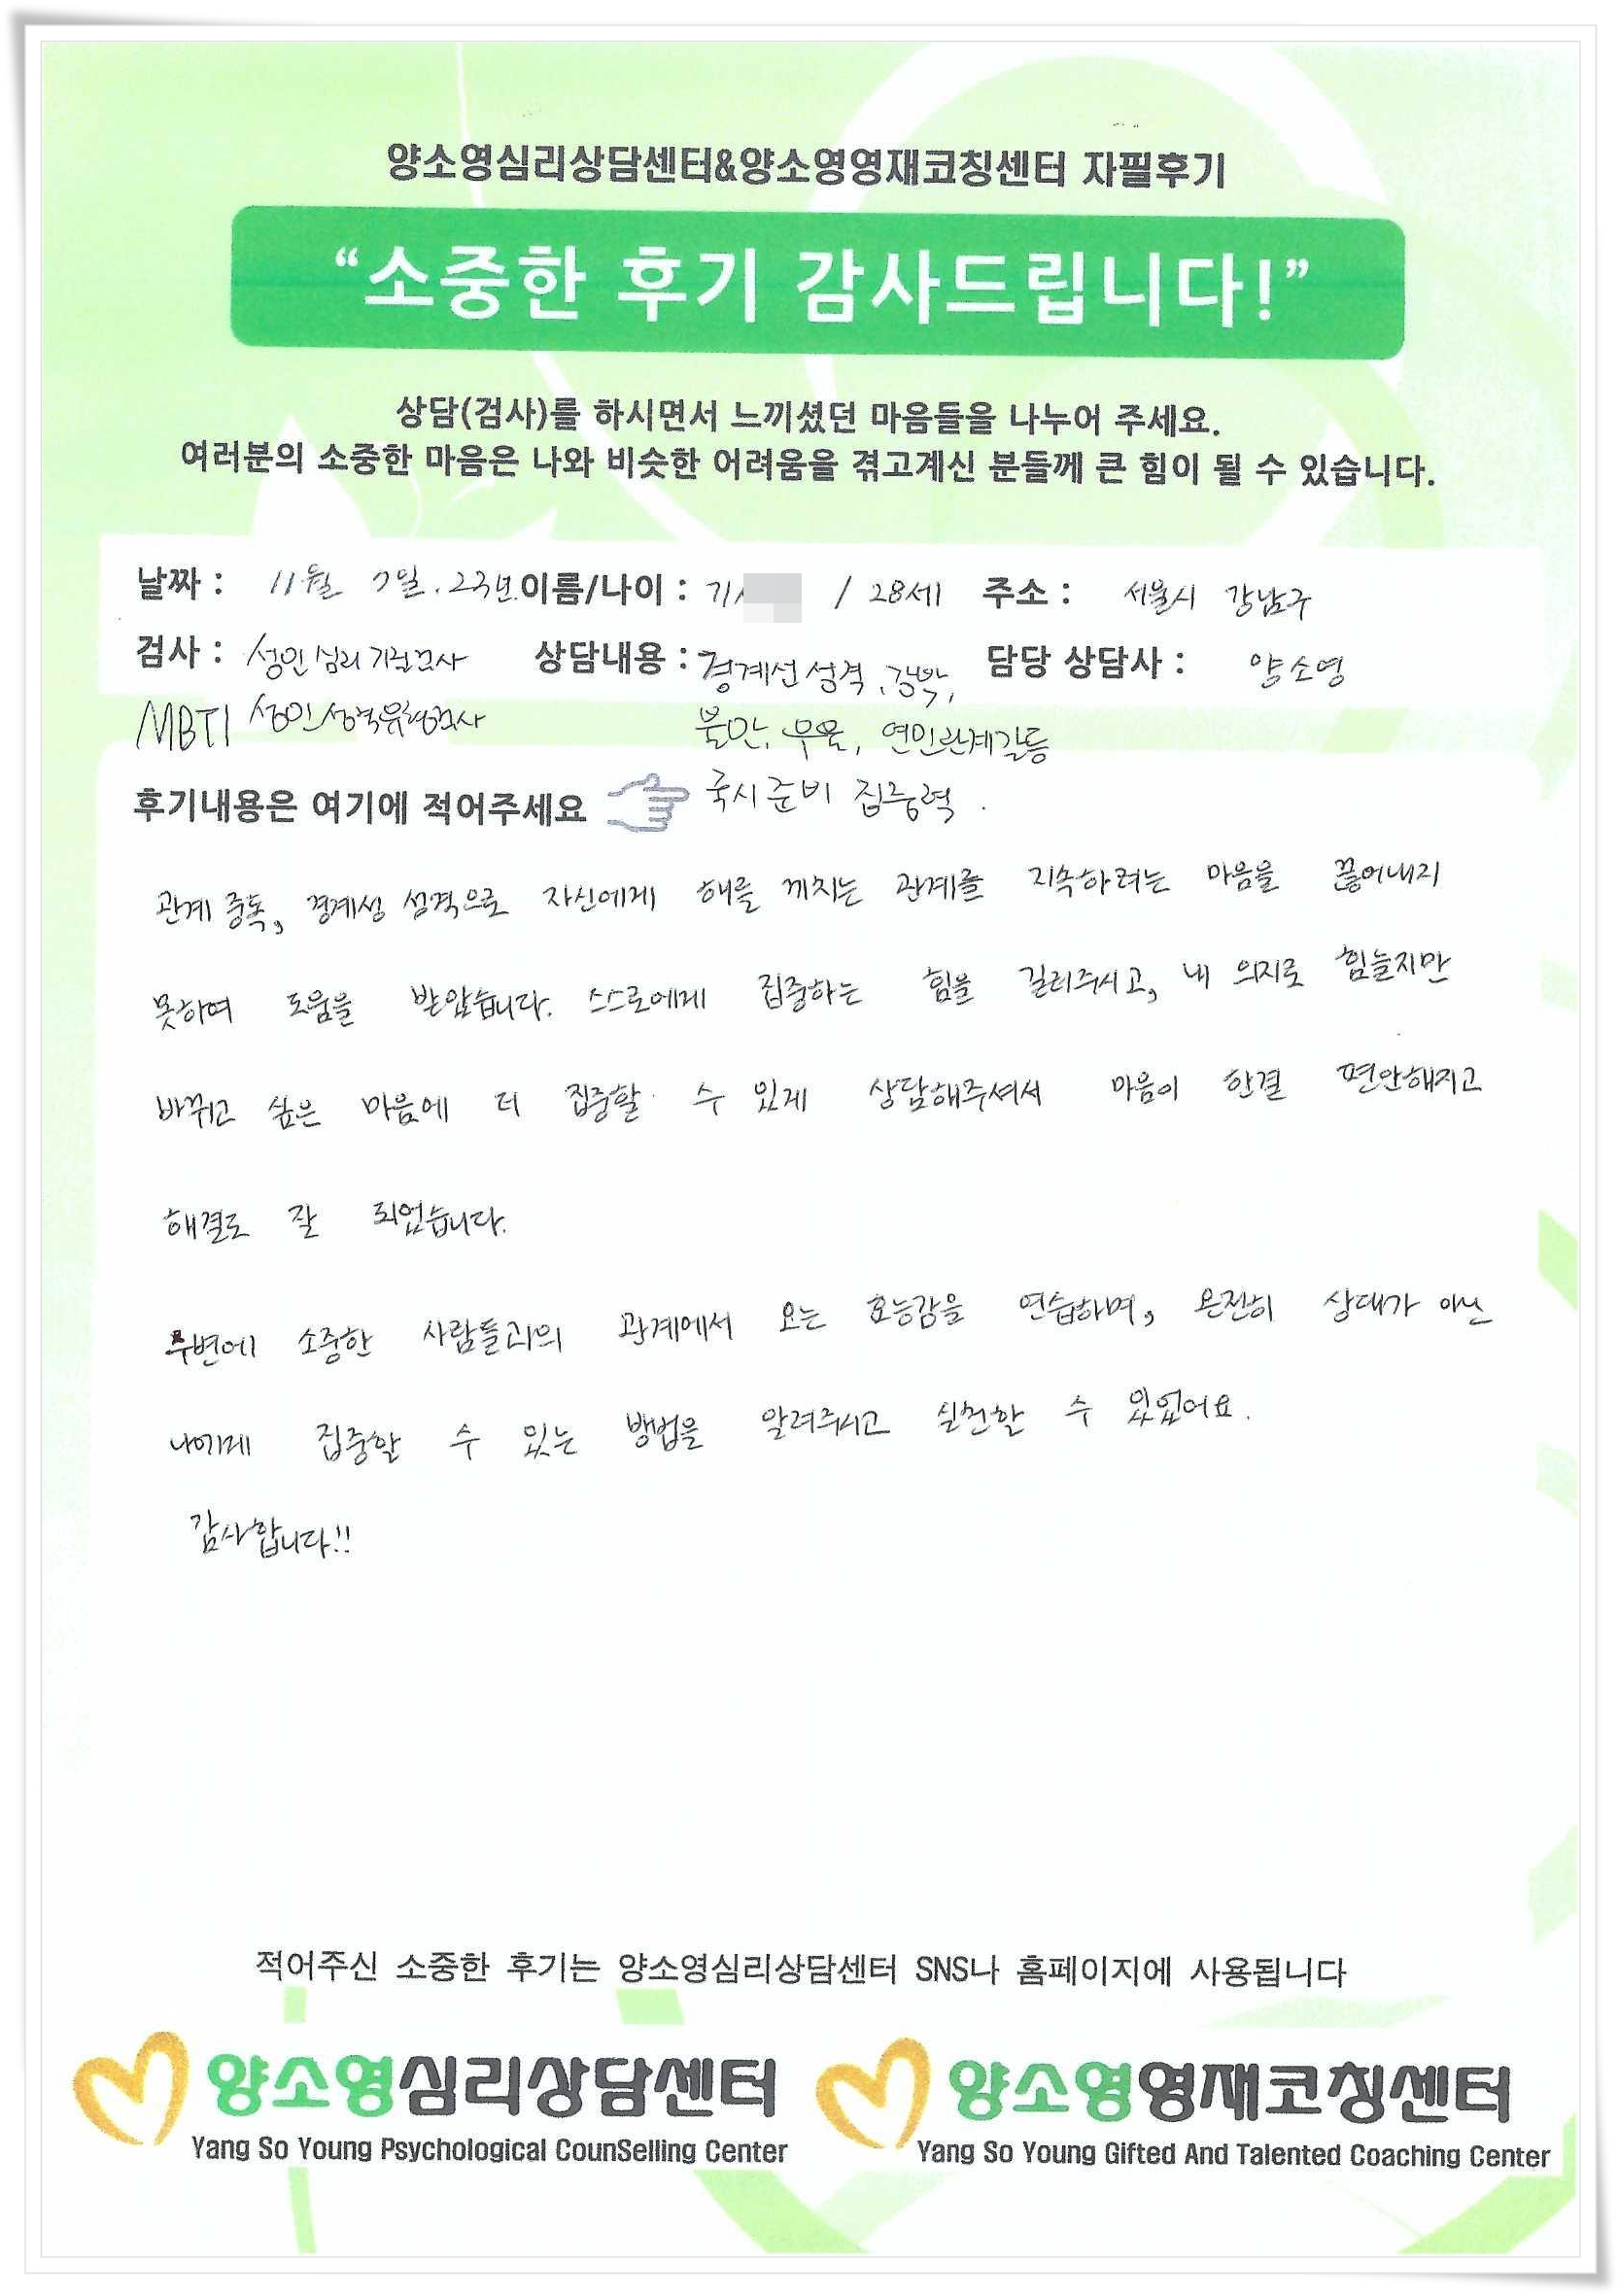 양소영심리상담센터&양소영영재코칭센터 자필후기
“소중한 후기 감사드립니다!”
상담(검사)를 하시면서 느끼셨던 마음들을 나누어 주세요.
여러분의 소중한 마음은 나와 비슷한 어려움을 겪고계신 분들께 큰 힘이 될 수 있습니다.
날짜 : 11월 7일. 23년. 이름/나이 : / 28세 주소 : 서울시 강남구
검사 : 성인 심리 기질검사 상담내용 : 경계선 성격, 강박, 담당 상담사 : 양소영
MBTI 성인 성격유형검사 불안, 우울, 연인관계갈등
후기내용은 여기에 적어주세요 국시준비 집중력.
관계 중독, 경계성 성격으로 자신에게 해를 끼치는 관계를 지속하려는 마음을 끊어내지
못하여 도움을 받았습니다. 스스로에게 집중하는 힘을 길러주시고, 내 의지로 힘들지만
바뀌고 싶은 마음에 더 집중할 수 있게 상담해주셔서 마음이 한결 편안해지고
해결도 잘 되었습니다.
주변에 소중한 사람들과의 관계에서 오는 효능감을 연습하며, 온전히 상대가 아닌
나에게 집중할 수 있는 방법을 알려주시고 실천할 수 있었어요.
감사합니다!!
적어주신 소중한 후기는 양소영심리상담센터 SNS나 홈페이지에 사용됩니다
양소영심리상담센터 양소영영재코칭센터
Yang So Young Psychological CounSelling Center Yang So Young Gifted And Talented Coaching Center